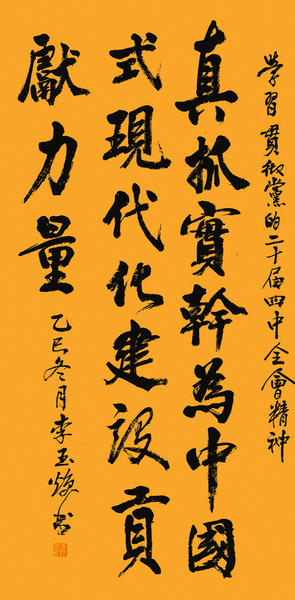 学習貫徹黨的二十届四中全會精神
真抓實幹為中國
式現代化建設貢
獻力量
乙巳冬月李玉焕书